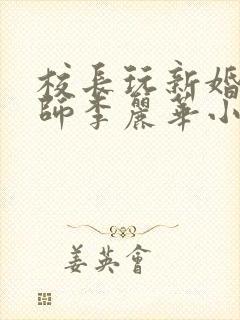 校長玩新婚
師李麗華小
姜英會